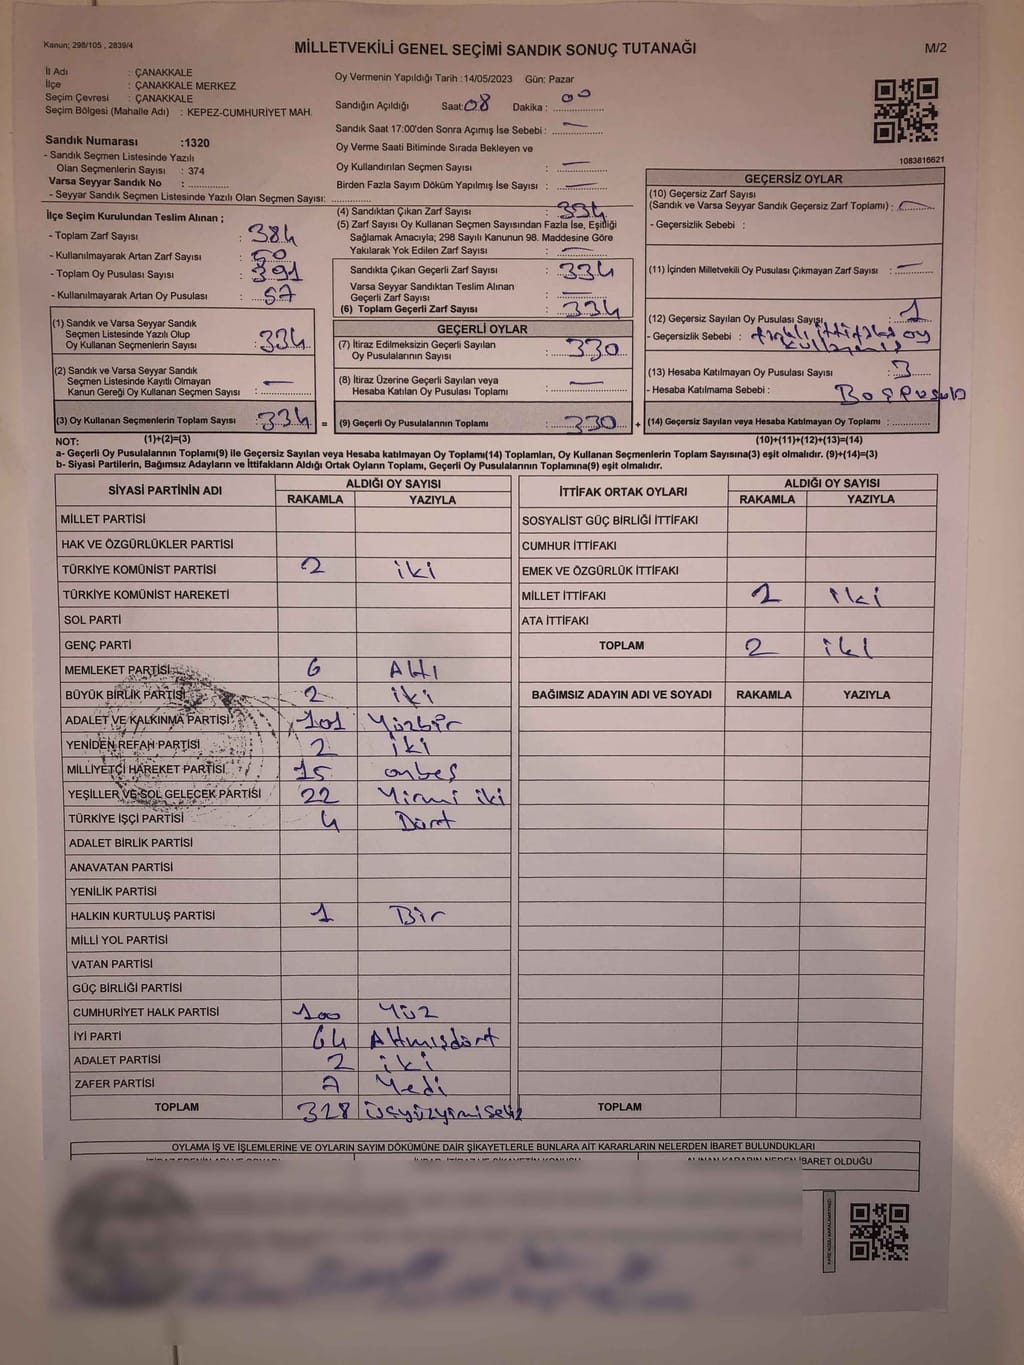 Kanun; 298/105 , 2839/4
MİLLETVEKİLİ GENEL SEÇİMİ SANDIK SONUÇ TUTANAĞI
M/2
İl Adı : ÇANAKKALE
İlçe : ÇANAKKALE MERKEZ
Seçim Çevresi : ÇANAKKALE
Seçim Bölgesi (Mahalle Adı) : KEPEZ-CUMHURİYET MAH.
Sandık Numarası :1320
- Sandık Seçmen Listesinde Yazılı
Olan Seçmenlerin Sayısı : 374
Varsa Seyyar Sandık No : ..............
- Seyyar Sandık Seçmen Listesinde Yazılı Olan Seçmen Sayısı: ..............
Oy Vermenin Yapıldığı Tarih :14/05/2023 Gün: Pazar
Sandığın Açıldığı Saat: 08 Dakika : 00
Sandık Saat 17:00'den Sonra Açımış İse Sebebi : —
Oy Verme Saati Bitiminde Sırada Bekleyen ve
Oy Kullandırılan Seçmen Sayısı : —
Birden Fazla Sayım Döküm Yapılmış İse Sayısı : —
1083816621
İlçe Seçim Kurulundan Teslim Alınan ;
- Toplam Zarf Sayısı : 384
- Kullanılmayarak Artan Zarf Sayısı : 50
- Toplam Oy Pusulası Sayısı : 391
- Kullanılmayarak Artan Oy Pusulası : 57
(1) Sandık ve Varsa Seyyar Sandık
Seçmen Listesinde Yazılı Olup
Oy Kullanan Seçmenlerin Sayısı : 334
(2) Sandık ve Varsa Seyyar Sandık
Seçmen Listesinde Kayıtlı Olmayan
Kanun Gereği Oy Kullanan Seçmen Sayısı : —
(3) Oy Kullanan Seçmenlerin Toplam Sayısı : 334
(4) Sandıktan Çıkan Zarf Sayısı : 334
(5) Zarf Sayısı Oy Kullanan Seçmen Sayısından Fazla İse, Eşitliği
Sağlamak Amacıyla; 298 Sayılı Kanunun 98. Maddesine Göre
Yakılarak Yok Edilen Zarf Sayısı : —
Sandıkta Çıkan Geçerli Zarf Sayısı : 334
Varsa Seyyar Sandıktan Teslim Alınan
Geçerli Zarf Sayısı : —
(6) Toplam Geçerli Zarf Sayısı : 334
GEÇERLİ OYLAR
(7) İtiraz Edilmeksizin Geçerli Sayılan
Oy Pusulalarının Sayısı : 330
(8) İtiraz Üzerine Geçerli Sayılan veya
Hesaba Katılan Oy Pusulası Toplamı : —
= (9) Geçerli Oy Pusulalarının Toplamı : 330 +
GEÇERSİZ OYLAR
(10) Geçersiz Zarf Sayısı
(Sandık ve Varsa Seyyar Sandık Geçersiz Zarf Toplamı) : —
- Geçersizlik Sebebi :
(11) İçinden Milletvekili Oy Pusulası Çıkmayan Zarf Sayısı : —
(12) Geçersiz Sayılan Oy Pusulası Sayısı : 1
- Geçersizlik Sebebi : farklı ittifaka oy
(13) Hesaba Katılmayan Oy Pusulası Sayısı : 3
- Hesaba Katılmama Sebebi : Boş Pusula
(14) Geçersiz Sayılan veya Hesaba Katılmayan Oy Toplamı : ............
NOT: (1)+(2)=(3) (10)+(11)+(12)+(13)=(14)
a- Geçerli Oy Pusulalarının Toplamı(9) ile Geçersiz Sayılan veya Hesaba katılmayan Oy Toplamı(14) Toplamları, Oy Kullanan Seçmenlerin Toplam Sayısına(3) eşit olmalıdır. (9)+(14)=(3)
b- Siyasi Partilerin, Bağımsız Adayların ve İttifakların Aldığı Ortak Oyların Toplamı, Geçerli Oy Pusulalarının Toplamına(9) eşit olmalıdır.
SİYASİ PARTİNİN ADI ALDIĞI OY SAYISI
RAKAMLA YAZIYLA
MİLLET PARTİSİ
HAK VE ÖZGÜRLÜKLER PARTİSİ
TÜRKİYE KOMÜNİST PARTİSİ 2 iki
TÜRKİYE KOMÜNİST HAREKETİ
SOL PARTİ
GENÇ PARTİ
MEMLEKET PARTİSİ 6 Altı
BÜYÜK BİRLİK PARTİSİ 2 iki
ADALET VE KALKINMA PARTİSİ 101 Yüzbir
YENİDEN REFAH PARTİSİ 2 iki
MİLLİYETÇİ HAREKET PARTİSİ 15 onbeş
YEŞİLLER VE SOL GELECEK PARTİSİ 22 Yirmi iki
TÜRKİYE İŞÇİ PARTİSİ 4 Dört
ADALET BİRLİK PARTİSİ
ANAVATAN PARTİSİ
YENİLİK PARTİSİ
HALKIN KURTULUŞ PARTİSİ 1 Bir
MİLLİ YOL PARTİSİ
VATAN PARTİSİ
GÜÇ BİRLİĞİ PARTİSİ
CUMHURİYET HALK PARTİSİ 100 Yüz
İYİ PARTİ 64 Altmışdört
ADALET PARTİSİ 2 iki
ZAFER PARTİSİ 7 Yedi
TOPLAM 328
İTTİFAK ORTAK OYLARI ALDIĞI OY SAYISI
RAKAMLA YAZIYLA
SOSYALİST GÜÇ BİRLİĞİ İTTİFAKI
CUMHUR İTTİFAKI
EMEK VE ÖZGÜRLÜK İTTİFAKI
MİLLET İTTİFAKI 2 iki
ATA İTTİFAKI
TOPLAM 2 iki
BAĞIMSIZ ADAYIN ADI VE SOYADI RAKAMLA YAZIYLA
TOPLAM
OYLAMA İŞ VE İŞLEMLERİNE VE OYLARIN SAYIM DÖKÜMÜNE DAİR ŞİKAYETLERLE BUNLARA AİT KARARLARIN NELERDEN İBARET BULUNDUKLARI
ALINAN KARARIN NEDEN İBARET OLDUĞU